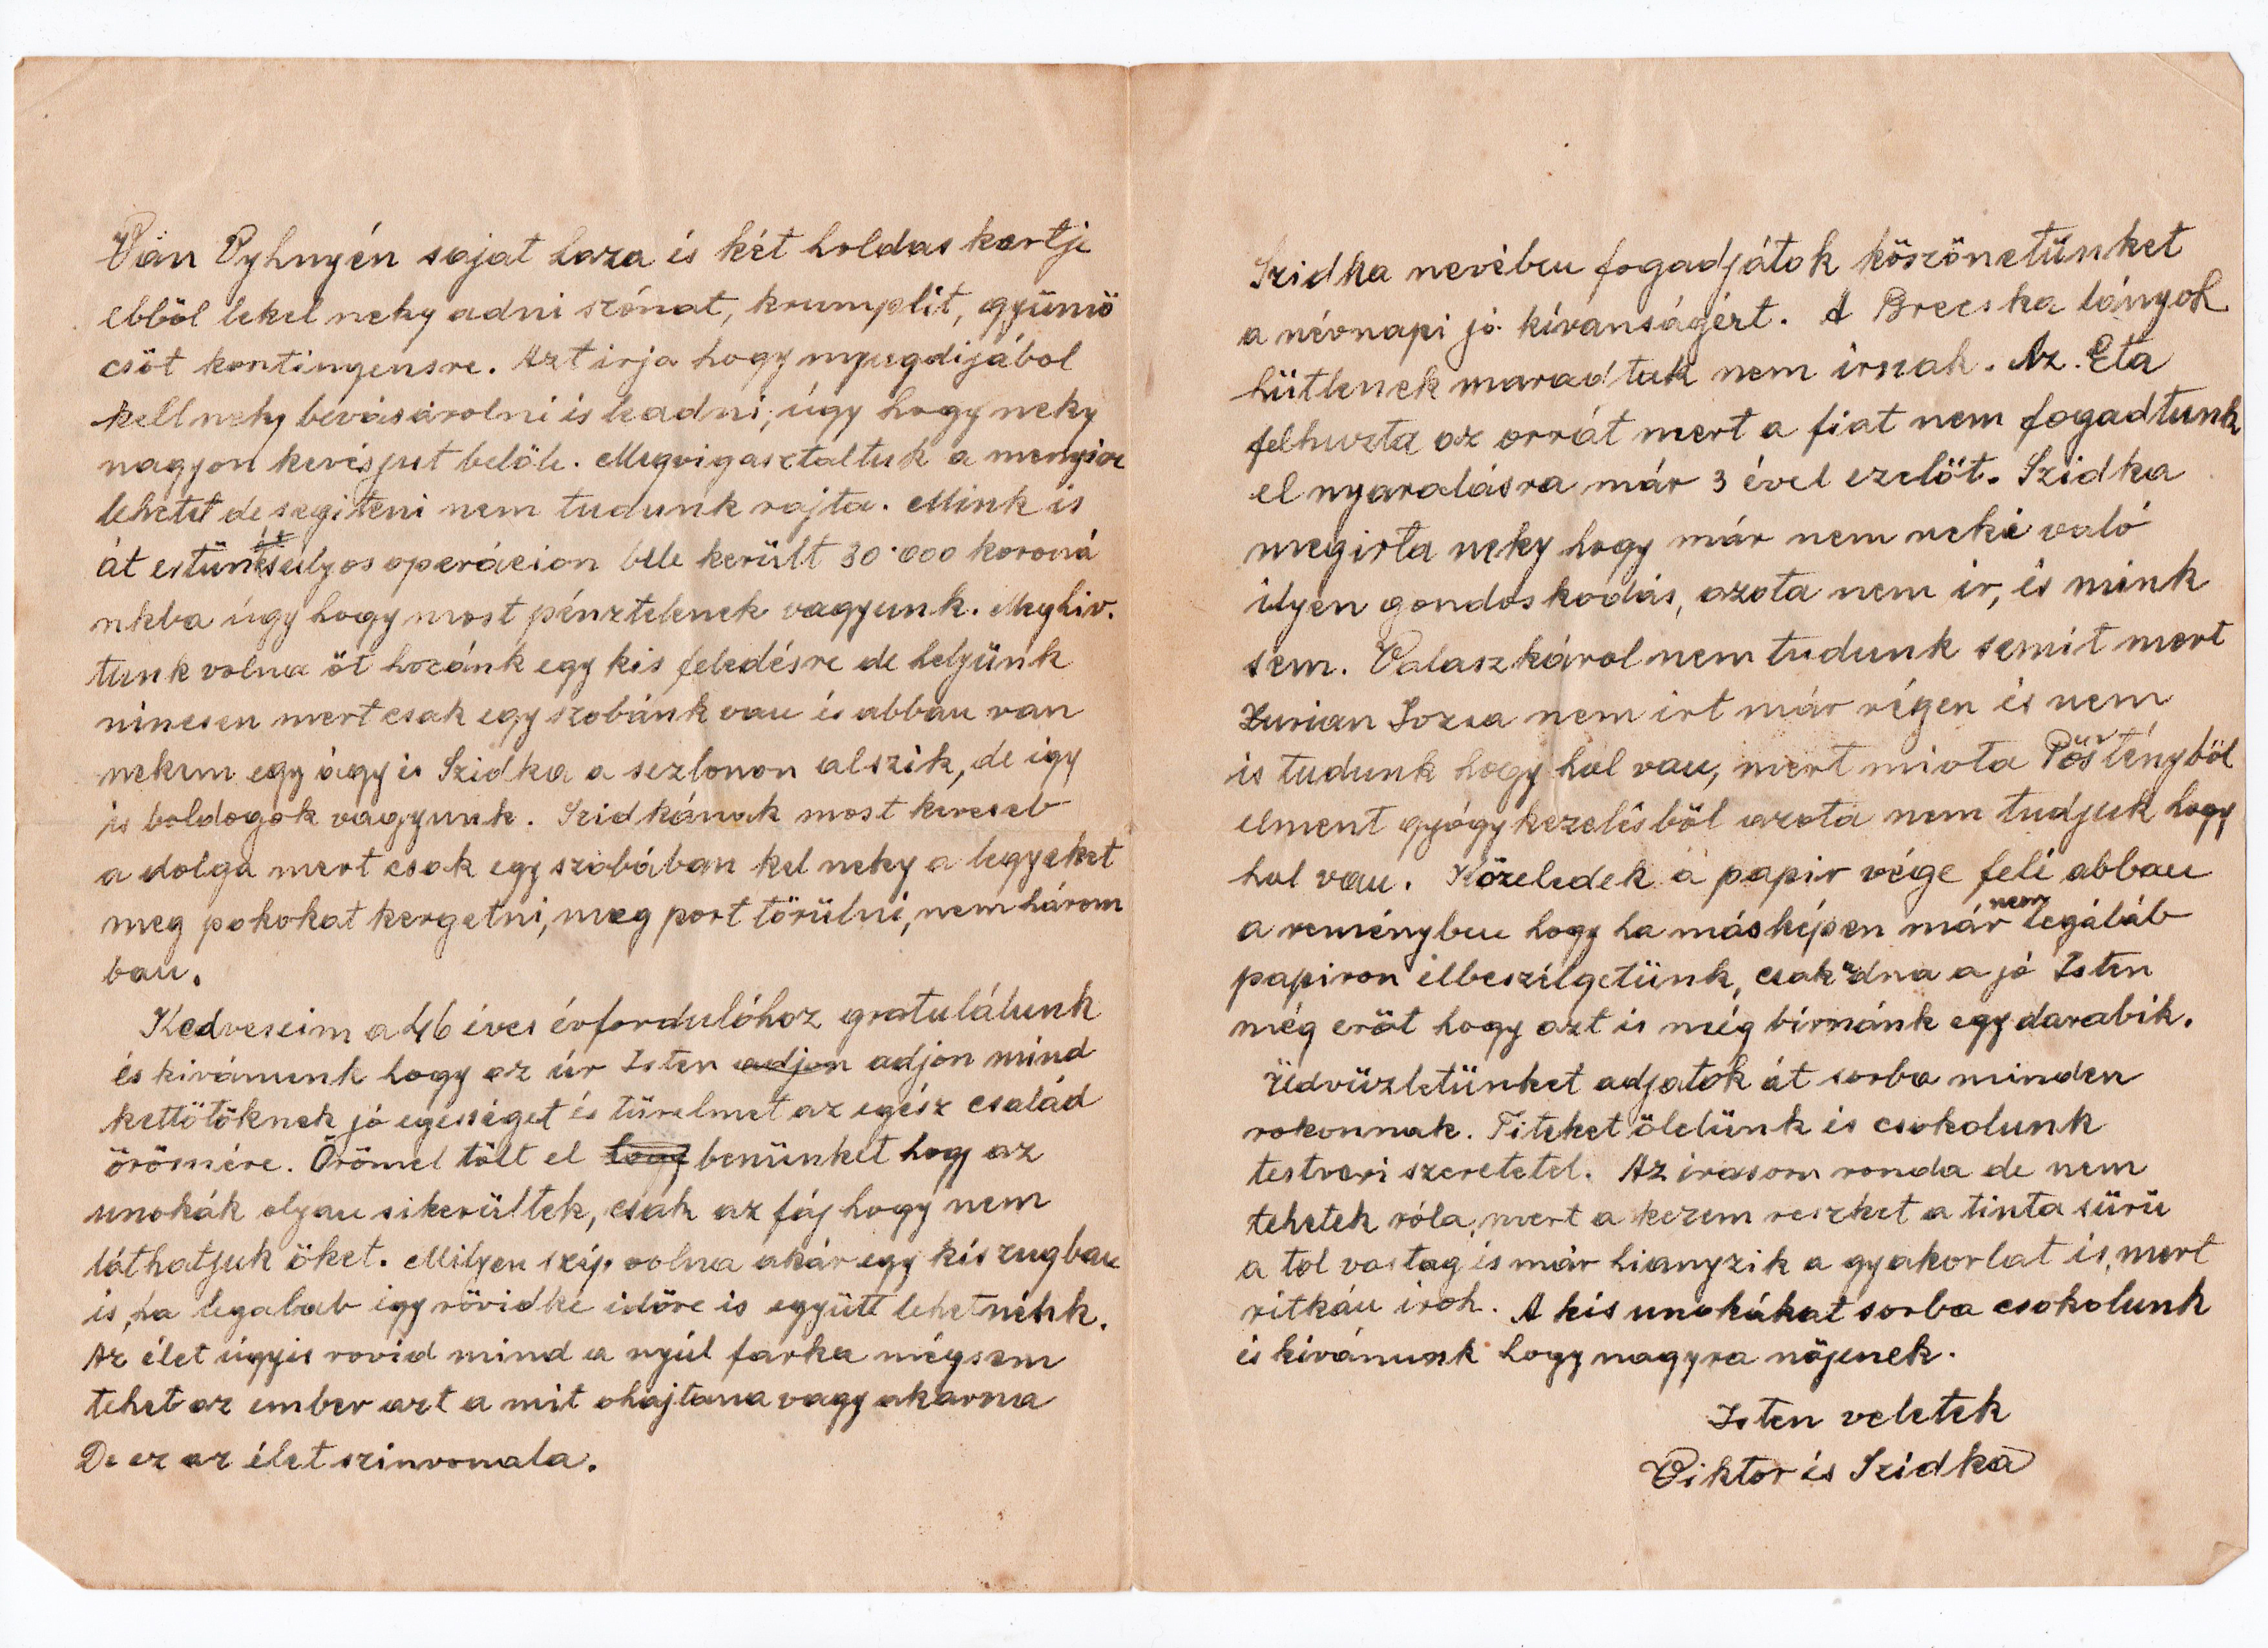 Van Vyhnyén sajat haza is két holdas kertje
ebböl lekel neky adni szónat, krumplit, gyümö
csöt kontingensre. Azt irja hogy nyugdijából
kell neky bevásárolni is leadni, úgy hogy neky
nagyon kevés jut belöle. Megvigasztaltuk a menyire
lehetet de segiteni nem tudunk rajta. Mink is
át estünk sulyos operácion bele került 30.000 koroná
nkba úgy hogy most pénztelenek vagyunk. Meghiv.
tunk volna öt hozánk egy kis feledésre de helyünk
nincsen mert csak egy szobánk van és abban van
nekem egy ágy is Szidka a sezlonon alszik, de igy
is boldogok vagyunk. Szidkának most keveseb
a dolga mert csak egy szobában kel neky a legyeket
meg pokokat kergetni, meg port törülni, nem három
ban.
Kedveseim a 46 éves évfordulóhoz gratulálunk
és kivánunk hogy az úr Isten adjon adjon mind
kettötöknek jó egésséget és türelmet az egész család
örömére. Örömel tölt el hogy benünket hogy az
unokák olyan sikerültek, csak az fáj hogy nem
láthatjuk öket. Milyen szép volna akár egy kis zugban
is, ha legalab igy rövidke idöre is együtt lehetnénk.
Az élet úgyis rovid mind a nyúl farka mégsem
tehet az ember azt a mit ohajtana vagy akarna
De ez az élet szinvonala.
Szidka nevében fogadjátok köszönetünket
a névnapi jó kívanságért. A Brecska lányok
hütlenek maradtak nem irnak. Az Eta
felhuzta az orrát mert a fiat nem fogadtunk
el nyaralásra már 3 ével ezelöt. Szidka
megirta neky hogy már nem neki való
ilyen gondoskodás, azota nem ir, és mink
sem. Valaszkárol nem tudunk semit mert
Zurian Jozsa nem irt már régen és nem
is tudunk hogy hol van, mert miota Pöstényböl
elment gyógykezelésböl azota nem tudjuk hogy
hol van. Közeledek a papir vége felé abban
a reményben hogy ha másképen már nem legáláb
papiron elbeszélgetünk, csak adna a jó Isten
még eröt hogy azt is még birnánk egy darabik.
Üdvüzletünket adjatok át sorba minden
rokonnak. Titeket ölelünk és csokolunk
testveri szeretetel. Az irasom ronda de nem
tehetek róla, mert a kezem reszket a tinta sürü
a tol vastag is már hianyzik a gyakorlat is, mert
ritkán iroh. A kis unokákat sorba csokolunk
és kivánunk hogy nagyra nöjenek.
Isten veletek
Viktor és Szidka